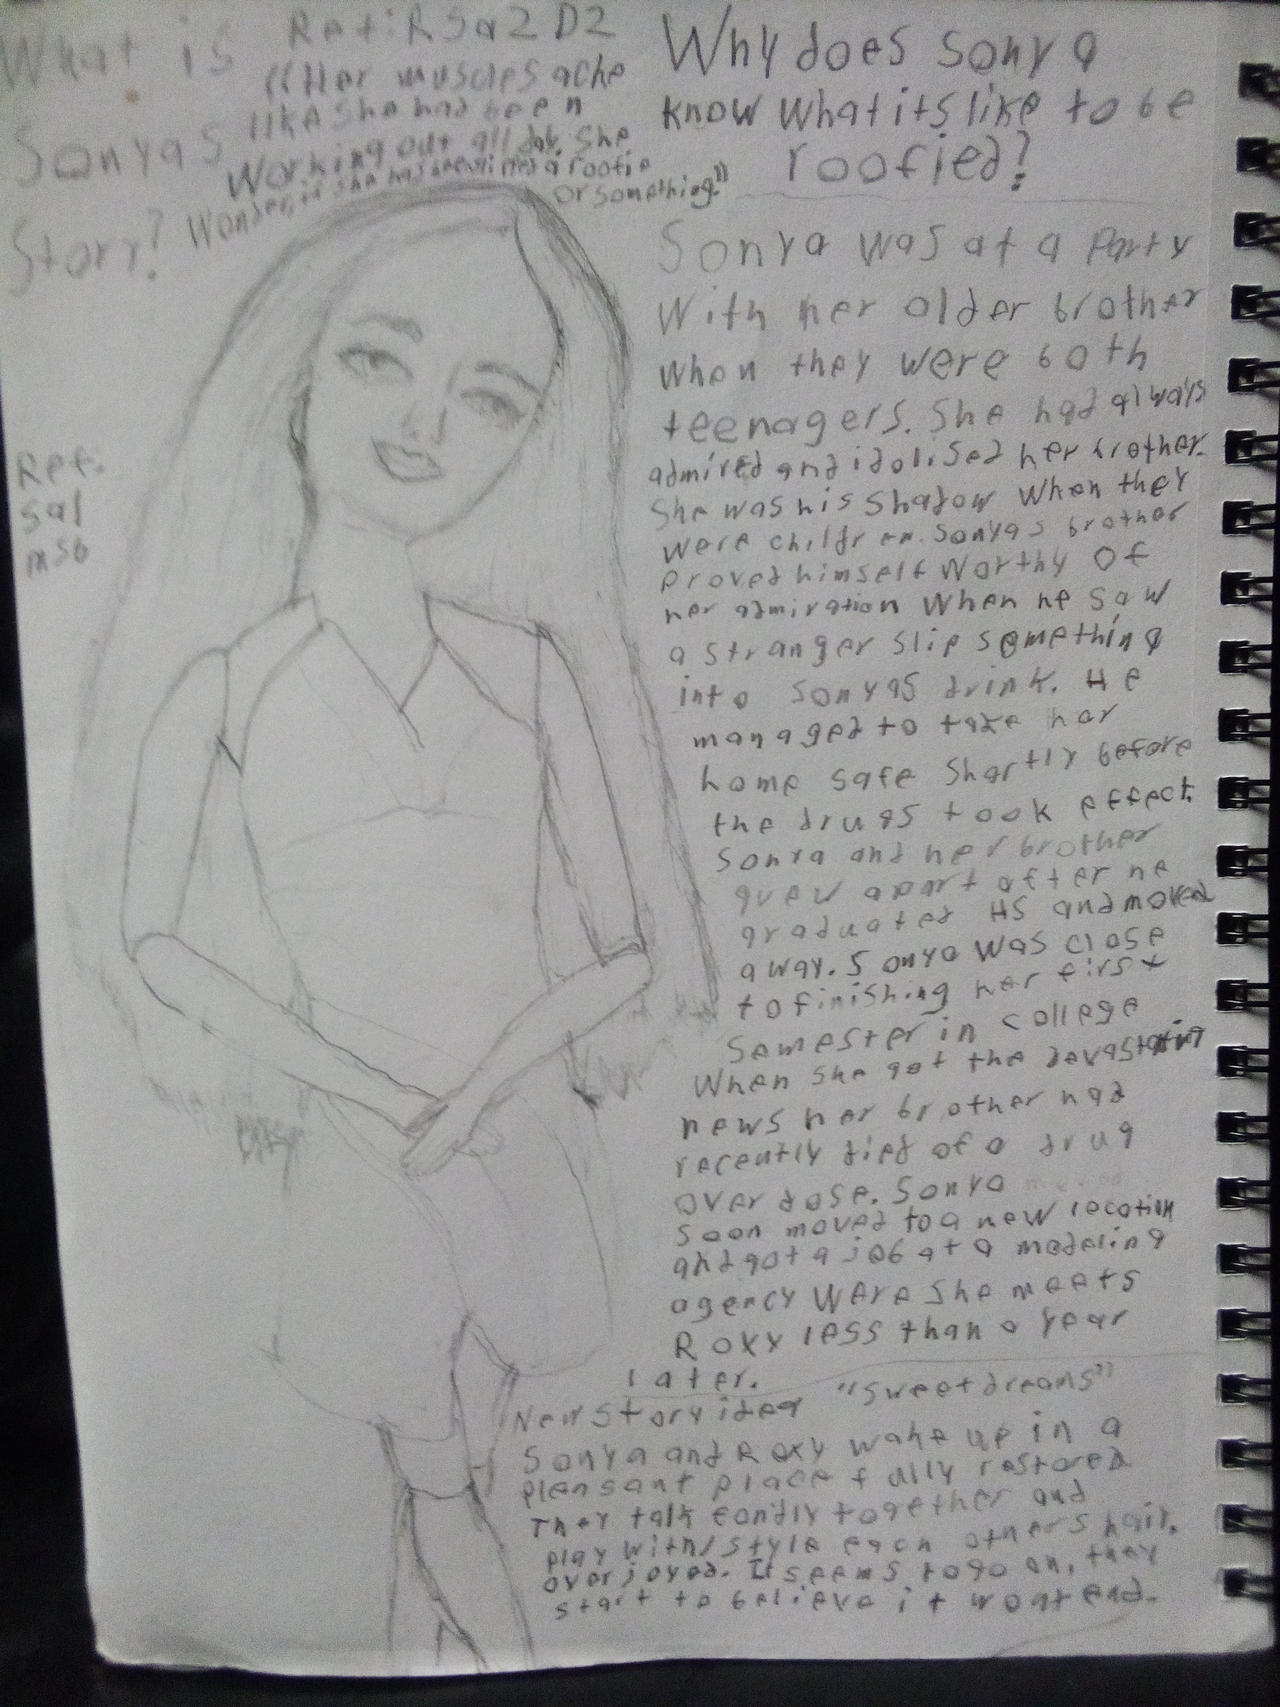 What is
Sonyas
Story?
Ref: RSa2 D2
"Her muscles ache
like she had been
working out all day. She
Wonders, if she has been slipped a roofie
or something."
Ref.
sal
mso
Why does Sonya
know what its like to be
roofied?
Sonya was at a Party
With her older brother
when they were both
teenagers. She had always
admired and idolised her brother.
She was his Shadow When they
were children. Sonyas brother
Proved himself Worthy of
her admiration When he saw
a stranger slip something
into Sonyas drink. He
managed to take her
home safe Shortly before
the drugs took effect.
Sonya and her brother
grew apart after he
graduated HS and moved
away. Sonya Was close
to finishing her first
Semester in college
When She got the devastating
news her brother had
recently died of a drug
over dose. Sonya
soon moved to a new location
and got a job at a modeling
agency Were She meets
Roxy less than a year
later.
New Story idea "Sweet dreams"
Sonya and Roxy wake up in a
pleasant place fully restored
They talk fondly together and
play with/style each others hair,
over joyed. It seems to go on, they
start to believe it wont end.